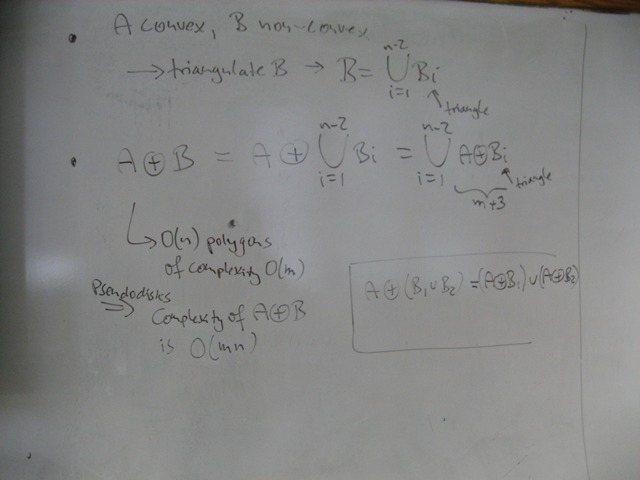 • A convex, B non-convex
→ triangulate B → B = ⋃_{i=1}^{n-2} Bi
triangle
• A⊕B = A⊕ ⋃_{i=1}^{n-2} Bi = ⋃_{i=1}^{n-2} A⊕Bi
triangle
m+3
↳ O(n) polygons
of complexity O(m)
Pseudodisks
⇒ Complexity of A⊕B
is O(mn)
A⊕(B₁∪B₂) = (A⊕B₁)∪(A⊕B₂)